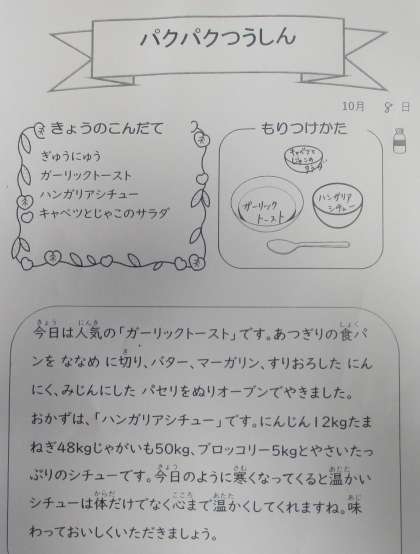 パクパクつうしん
10月 8 日
きょうのこんだて
ぎゅうにゅう
ガーリックトースト
ハンガリアシチュー
キャベツとじゃこのサラダ
もりつけかた
キャベツと
じゃこの
サラダ
ガーリック
トースト
ハンガリア
シチュー
今日は人気の「ガーリックトースト」です。あつぎりの食パ
ンを ななめ に切り、バター、マーガリン、すりおろした にん
にく、みじんにした パセリをぬりオーブンでやきました。
おかずは、「ハンガリアシチュー」です。にんじん12kgたま
ねぎ48kgじゃがいも50kg、ブロッコリー5kgとやさいたっ
ぷりのシチューです。今日のように寒くなってくると温かい
シチューは体だけでなく心まで温かくしてくれますね。味
わっておいしくいただきましょう。